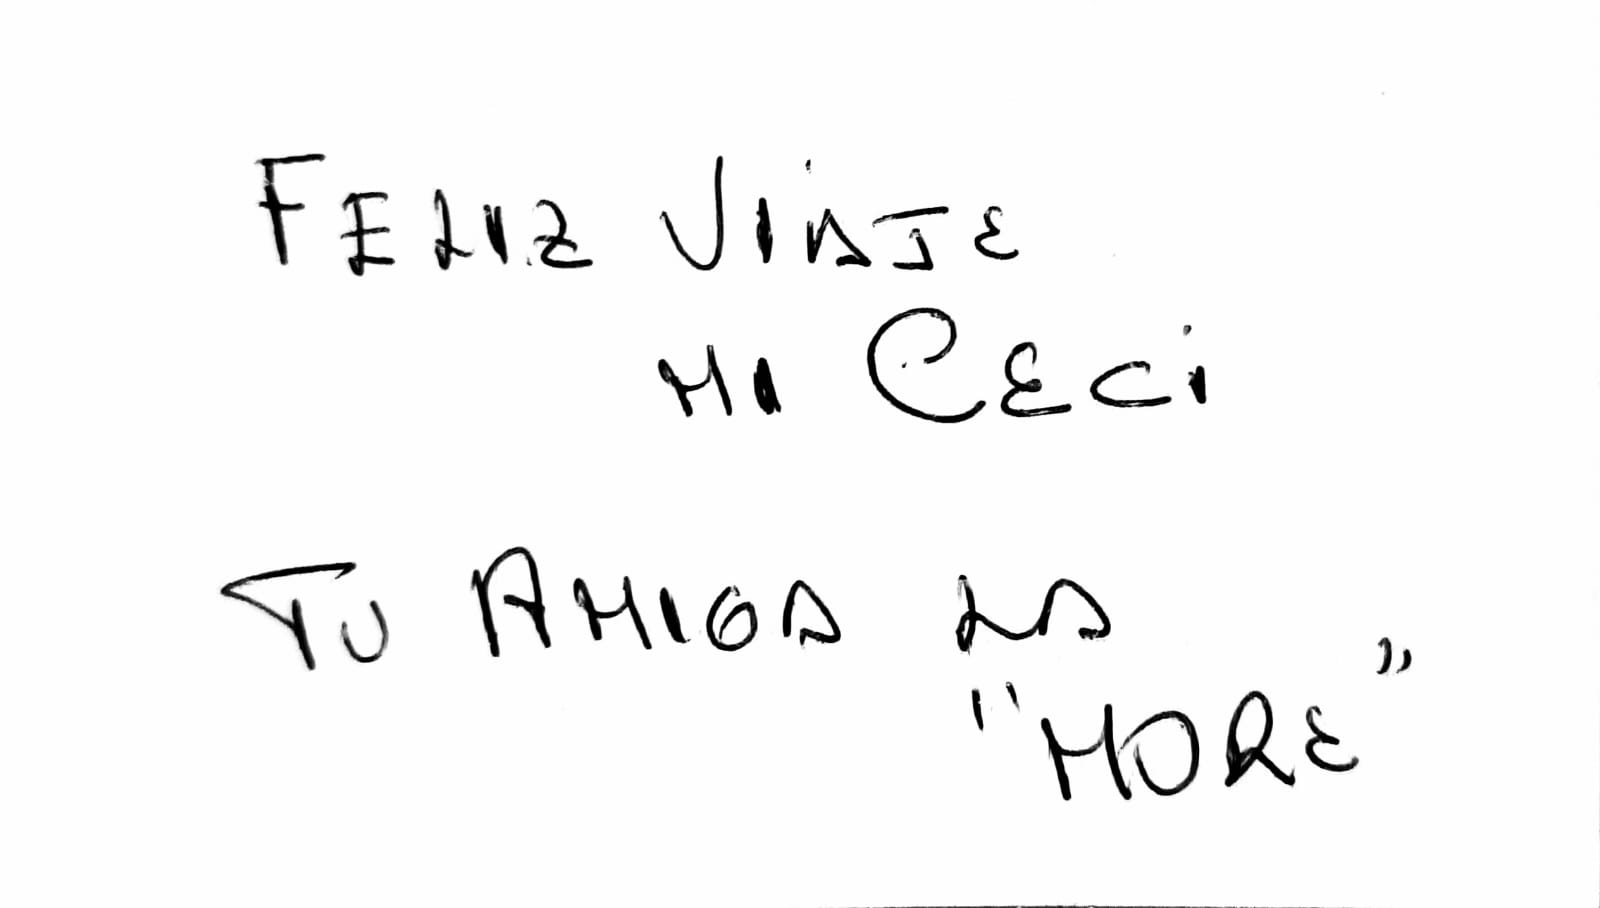 FELIZ VIAJE
MI CECi
TU AMIGA LA
"MORE"